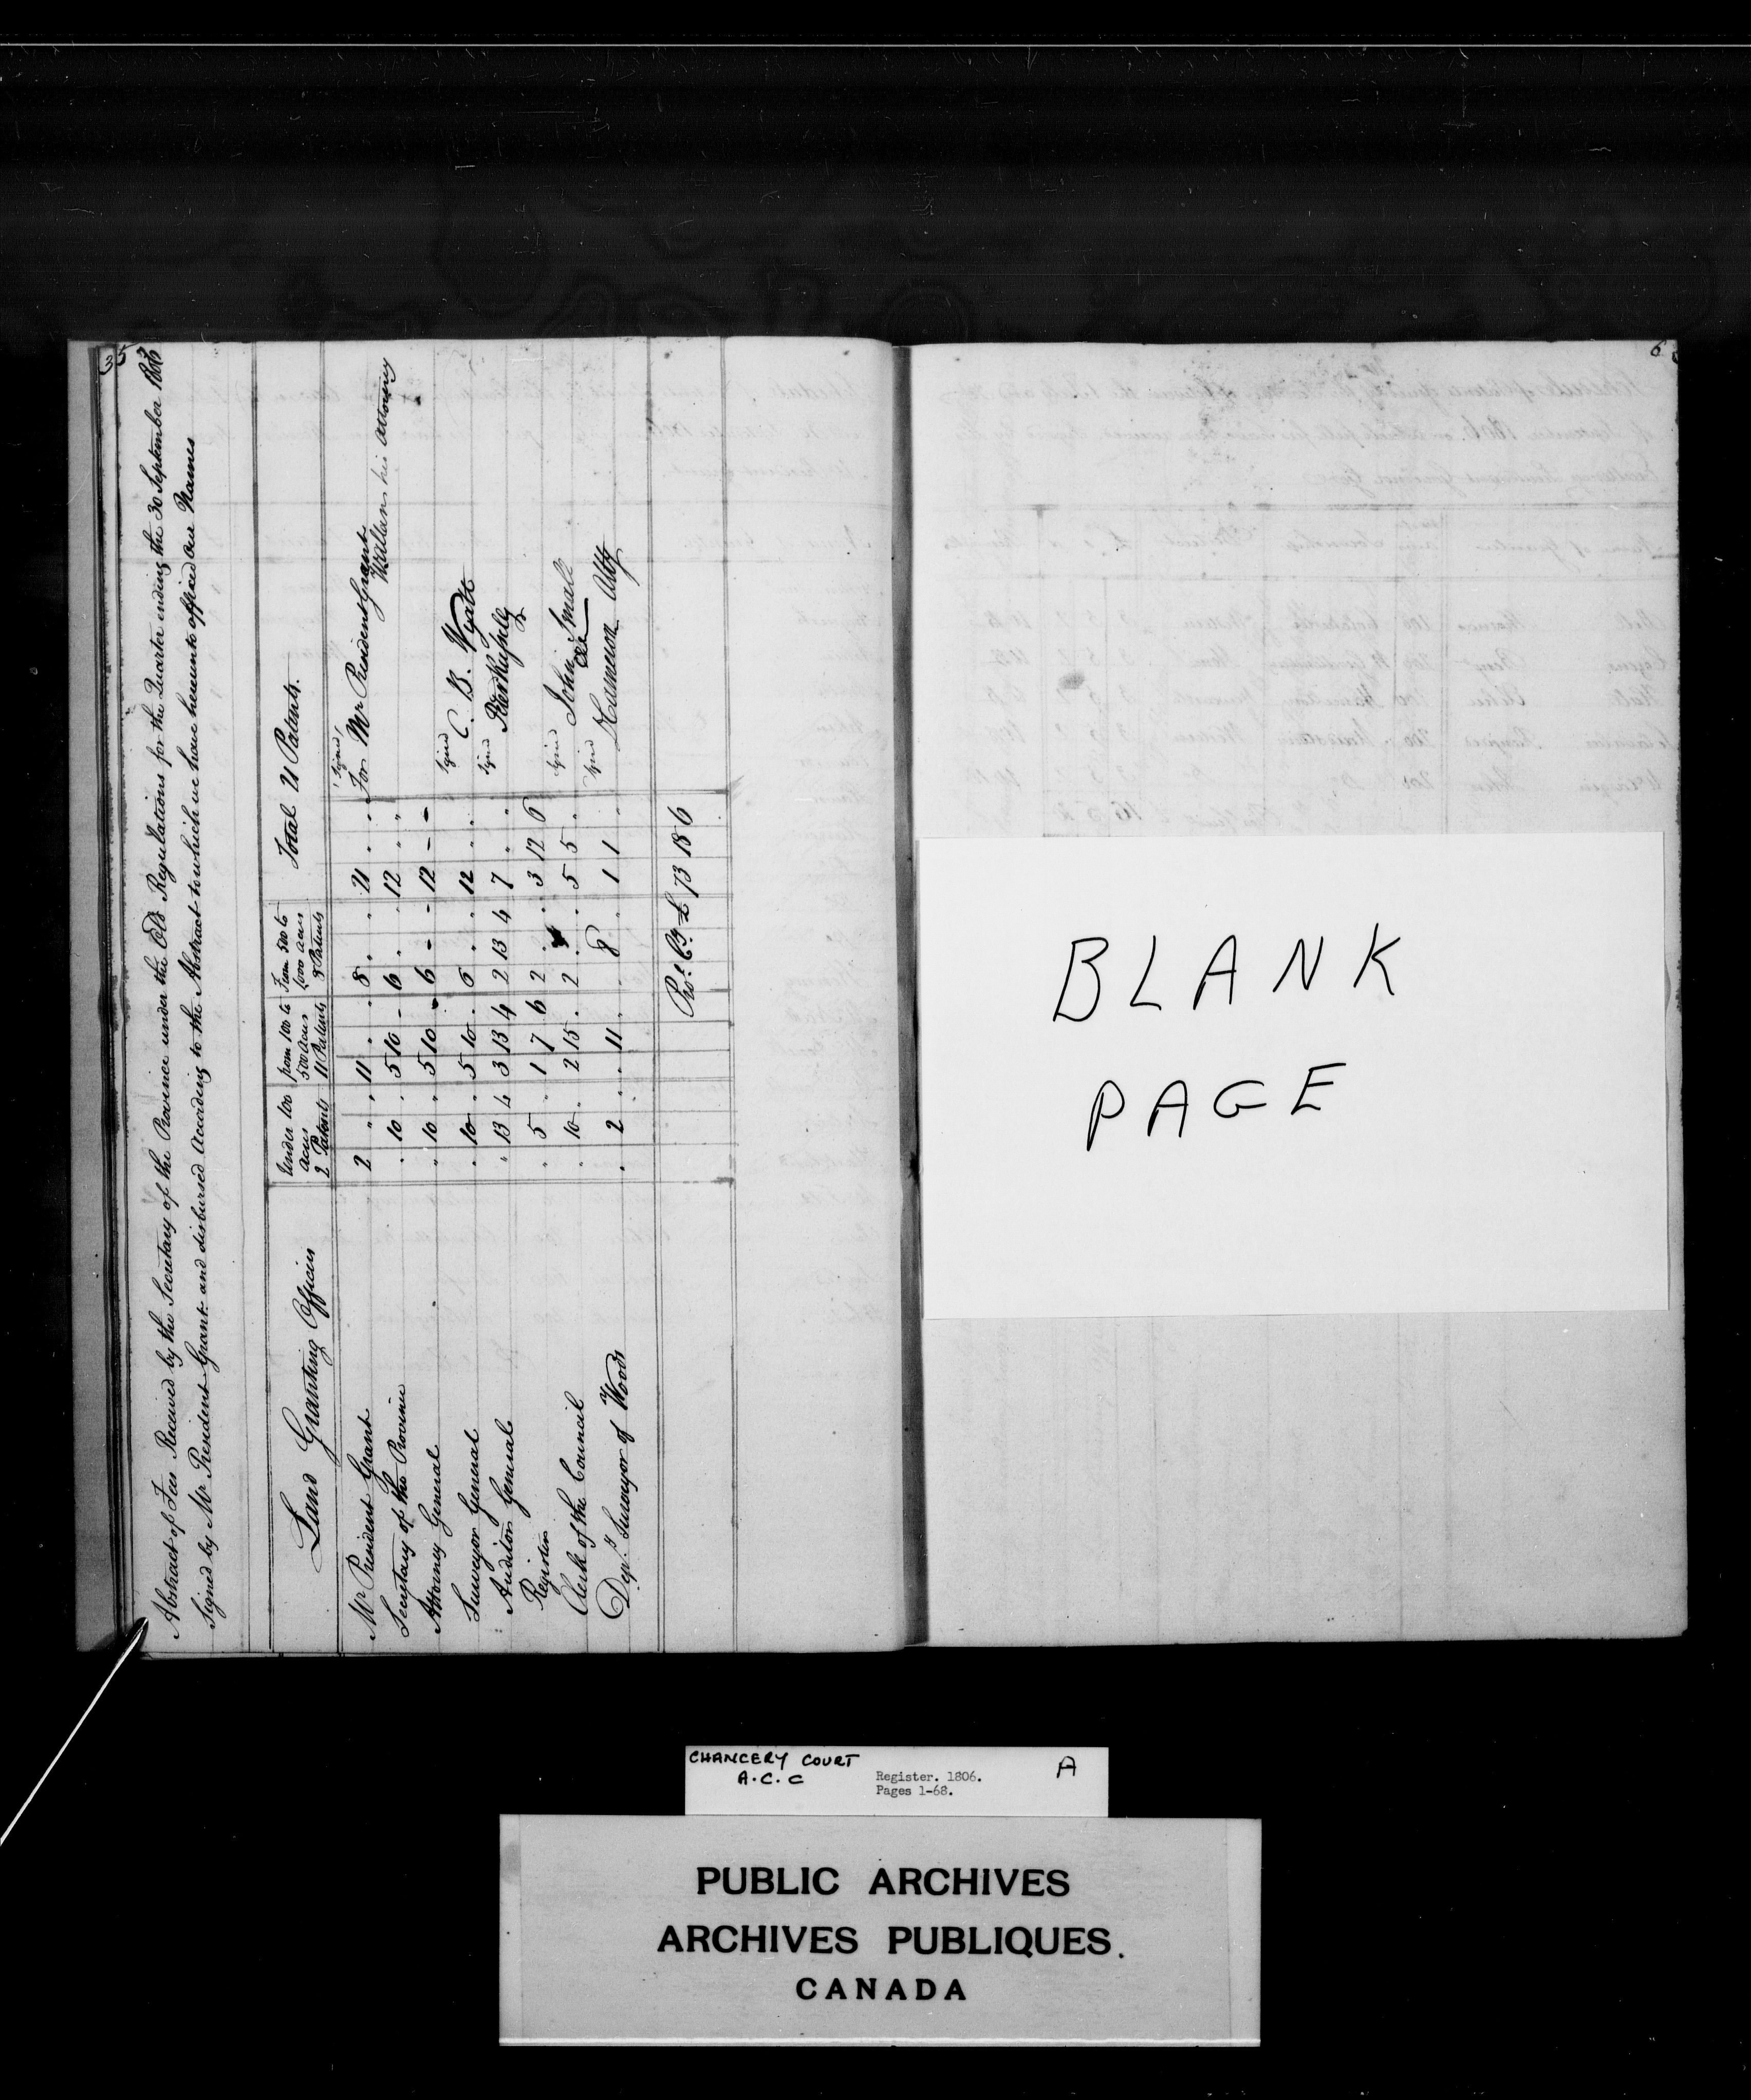 35
Abstract of Fees Received by the Secretary of the Province under the Old Regulations for the Quarter ending the 30 September 1806
Signed by Mr President Grant and disbursed According to the Abstract to which we have hereunto affixed our Names
Land Granting Officers | Under 100 acres 2 Patents | from 100 to 500 Acres 11 Patents | From 500 to 1000 acres 8 Patents | Total 21 Patents.
Mr President Grant | 2 " " | 11 . . | 8 . . | 21 . . | signed/ For Mr President Grant
W Allan his attorney
Secretary of the Province | . 10 . | 5 10 - | 6 . . | 12 " "
Attorney General | " 10 " | 5 10 - | 6 - - | 12 - -
Surveyor General | . 10 . | 5 10 . | 6 . . | 12 . . | signed C. B. Wyatt
Auditor General | " 13 4 | 3 13 4 | 2 13 4 | 7 " " | signed Peter Russell
Register | . 5 . | 1 7 6 | 2 . . | 3 12 6
Clerk of the Council | . 10 . | 2 15 . | 2 . . | 5 5 . | signed John Small
Depy Surveyor of Woods | . 2 . | . 11 . | . 8 . | 1 1 . | signed D Cameron Atty
Prol Cy £ 73 18 6
6
BLANK
PAGE
CHANCERY COURT
A.C.C
Register. 1806.
Pages 1-68.
A
PUBLIC ARCHIVES
ARCHIVES PUBLIQUES.
CANADA